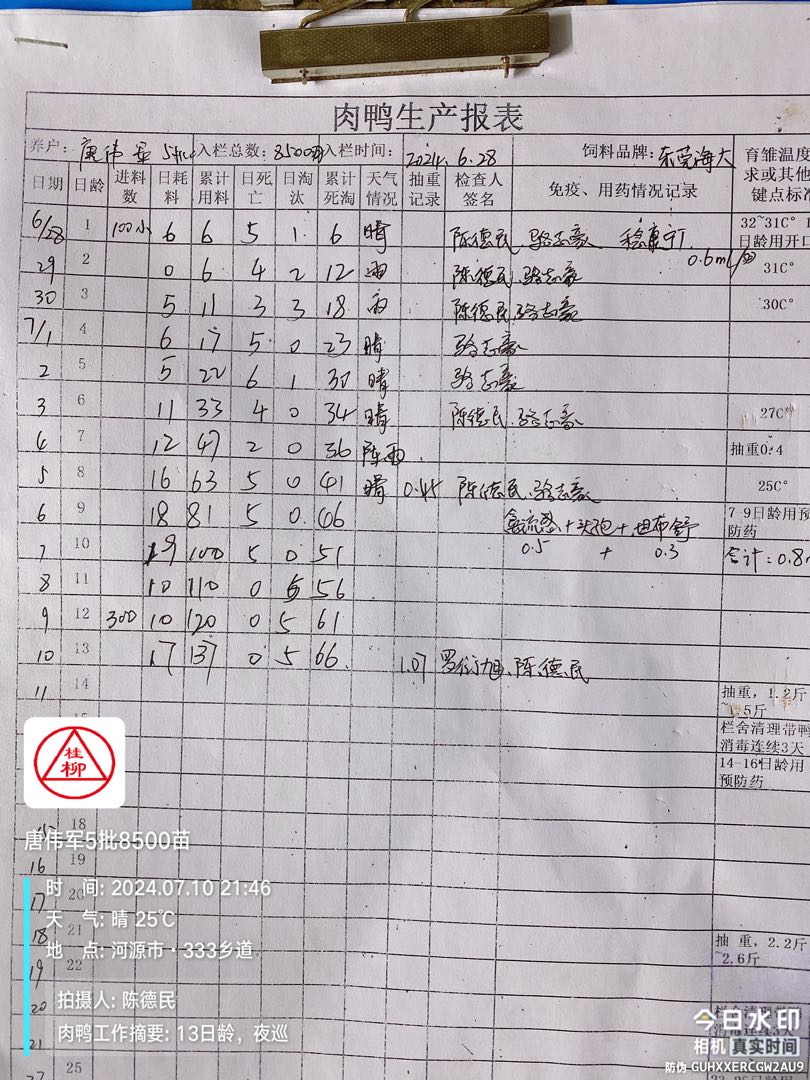 肉鸭生产报表
养户: 唐伟军 5批 入栏总数: 8500羽 入栏时间: 2024.6.28 饲料品牌: 东莞海大 育雏温度
求或其他
键点标准
日期 日龄 进料数 日耗料 累计用料 日死亡 日淘汰 累计死淘 天气情况 抽重记录 检查人签名 免疫、用药情况记录
6/28 1 100小 6 6 5 1 6 晴 陈德民.骆志豪 32~31C°
日龄用开口
0.6ml/羽
29 2 0 6 4 2 12 雨 陈德民.骆志豪 31C°
30 3 5 11 3 3 18 雨 陈德民.骆志豪 30C°
7/1 4 6 17 5 0 23 晴 骆志豪
2 5 5 22 6 1 30 晴 骆志豪
3 6 11 33 4 0 34 晴 陈德民.骆志豪 27C°
4 7 12 47 2 0 36 阵雨 抽重0.4
5 8 16 63 5 0 41 晴 0.45 陈德民.骆志豪 25C°
6 9 18 81 5 0 46 禽流感+头孢+坦布舒 7-9日龄用预
防药
7 10 19 100 5 0 51 0.5 + 0.3 合计:0.8
8 11 10 110 0 5 56
9 12 300 10 120 0 5 61
10 13 17 137 0 5 66 1.07 陈德民
11 14 抽重,1.2斤
~1.5斤
栏舍清理带鸭
消毒连续3天
14-16日龄用
预防药
桂柳
18
唐伟军5批8500苗
16 19
时 间: 2024.07.10 21:46
17 20
天 气: 晴 25℃
18 21 抽 重,2.2斤
~2.6斤
地 点: 河源市·333乡道
19 22
拍摄人: 陈德民
20
肉鸭工作摘要: 13日龄，夜巡
21
25
今日水印
相机 真实时间
防伪 GUHXXERCGW2AU9